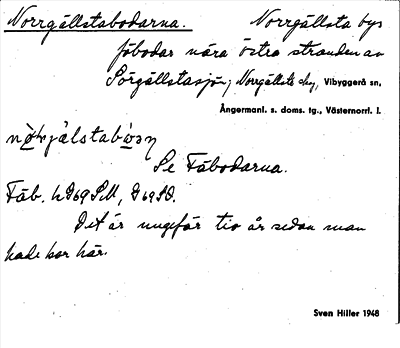 Norrgällstabodarna. Norrgällsta bys
fäbodar nära östra stranden av
Sörgällstasjön, Norrgällsta by, Vibyggerå sn,
Ångermanl. s. doms. tg., Västernorrl. l.
Se Fäbodarna.
Fäb.
Det är ungefär tio år sedan man
hade kor här.
Sven Hiller 1948